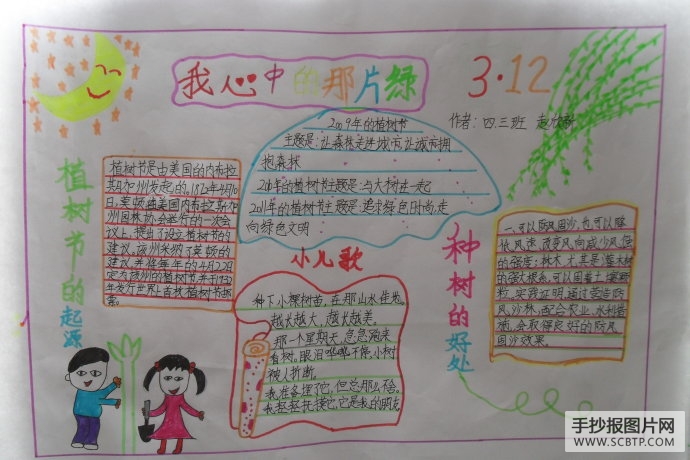 我心中的那片绿
3·12
作者:四.三班
植树节的起源
植树节是由美国的内布拉
斯加州发起的。1872年4月10
日,莫顿在美国内布拉斯加州
园林协会举行的一次会
议上,提出了设立植树节的
建议。该州采纳了莫顿的
建议,并把每年的4月22日
定为该州的植树节,并于1932
年发行世界上首枚植树节邮
票。
2009年的植树节
主题是:让森林走进城市,让城市拥
抱森林
2010年的植树节主题是:与大树进一起
2011年的植树节主题是:追求绿色时尚,走
向绿色文明
小儿歌
种下小棵树苗,在那山水佳处
越长越大,越长越美。
那一个星期天,急急跑来
看树。眼泪哗哗不停,小树
被人折断。
我准备埋了它,但总那么不舍。
我轻轻抚摸它,它是我的朋友
种树的好处
一、可以防风固沙,也可以降
低风速,改变风向,减少风沙
的强度;林木,尤其是灌木林
的强大根系,可以固着土壤颗
粒。实践证明,通过营造防
风沙林,配合农业、水利措
施,会取得良好的防风
固沙效果。
手抄报图片网
WWW.SCBTP.COM